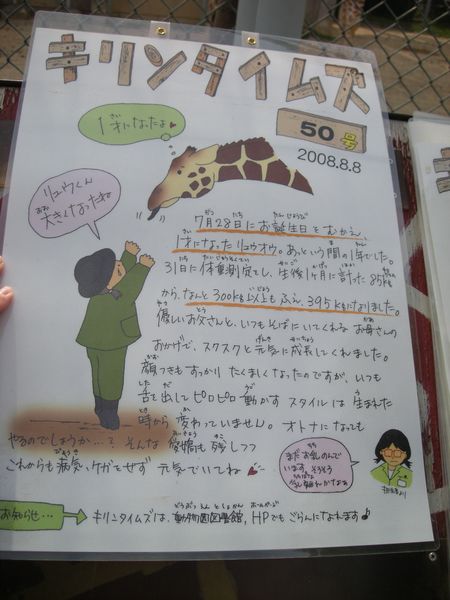 キリンタイムズ
50号
2008.8.8
1才になったよ♥
リュウくん
大きくなったね
7月28日にお誕生日をむかえ、
1才になったリュウオウ。あっという間の1年でした。
31日に体重測定をし、生後1ヶ月に計った85kg
から、なんと300kg以上もふえ、395kgになりました。
優しいお父さんと、いつもそばにいてくれるお母さんの
おかげで、スクスクと元気に成長してくれました。
顔つきもすっかりたくましくなったのですが、いつも
舌を出してピロピロ動かすスタイルは生まれた
時から変わっていません。オトナになっても
やるのでしょうか…? そんな愛嬌も残しつつ
これからも病気、ケガをせず元気でいてね♥
まだお乳のんで
います。そろそろ
担当者より
お知らせ…
キリンタイムズは、動物園図書館、HPでもごらんになれます♪